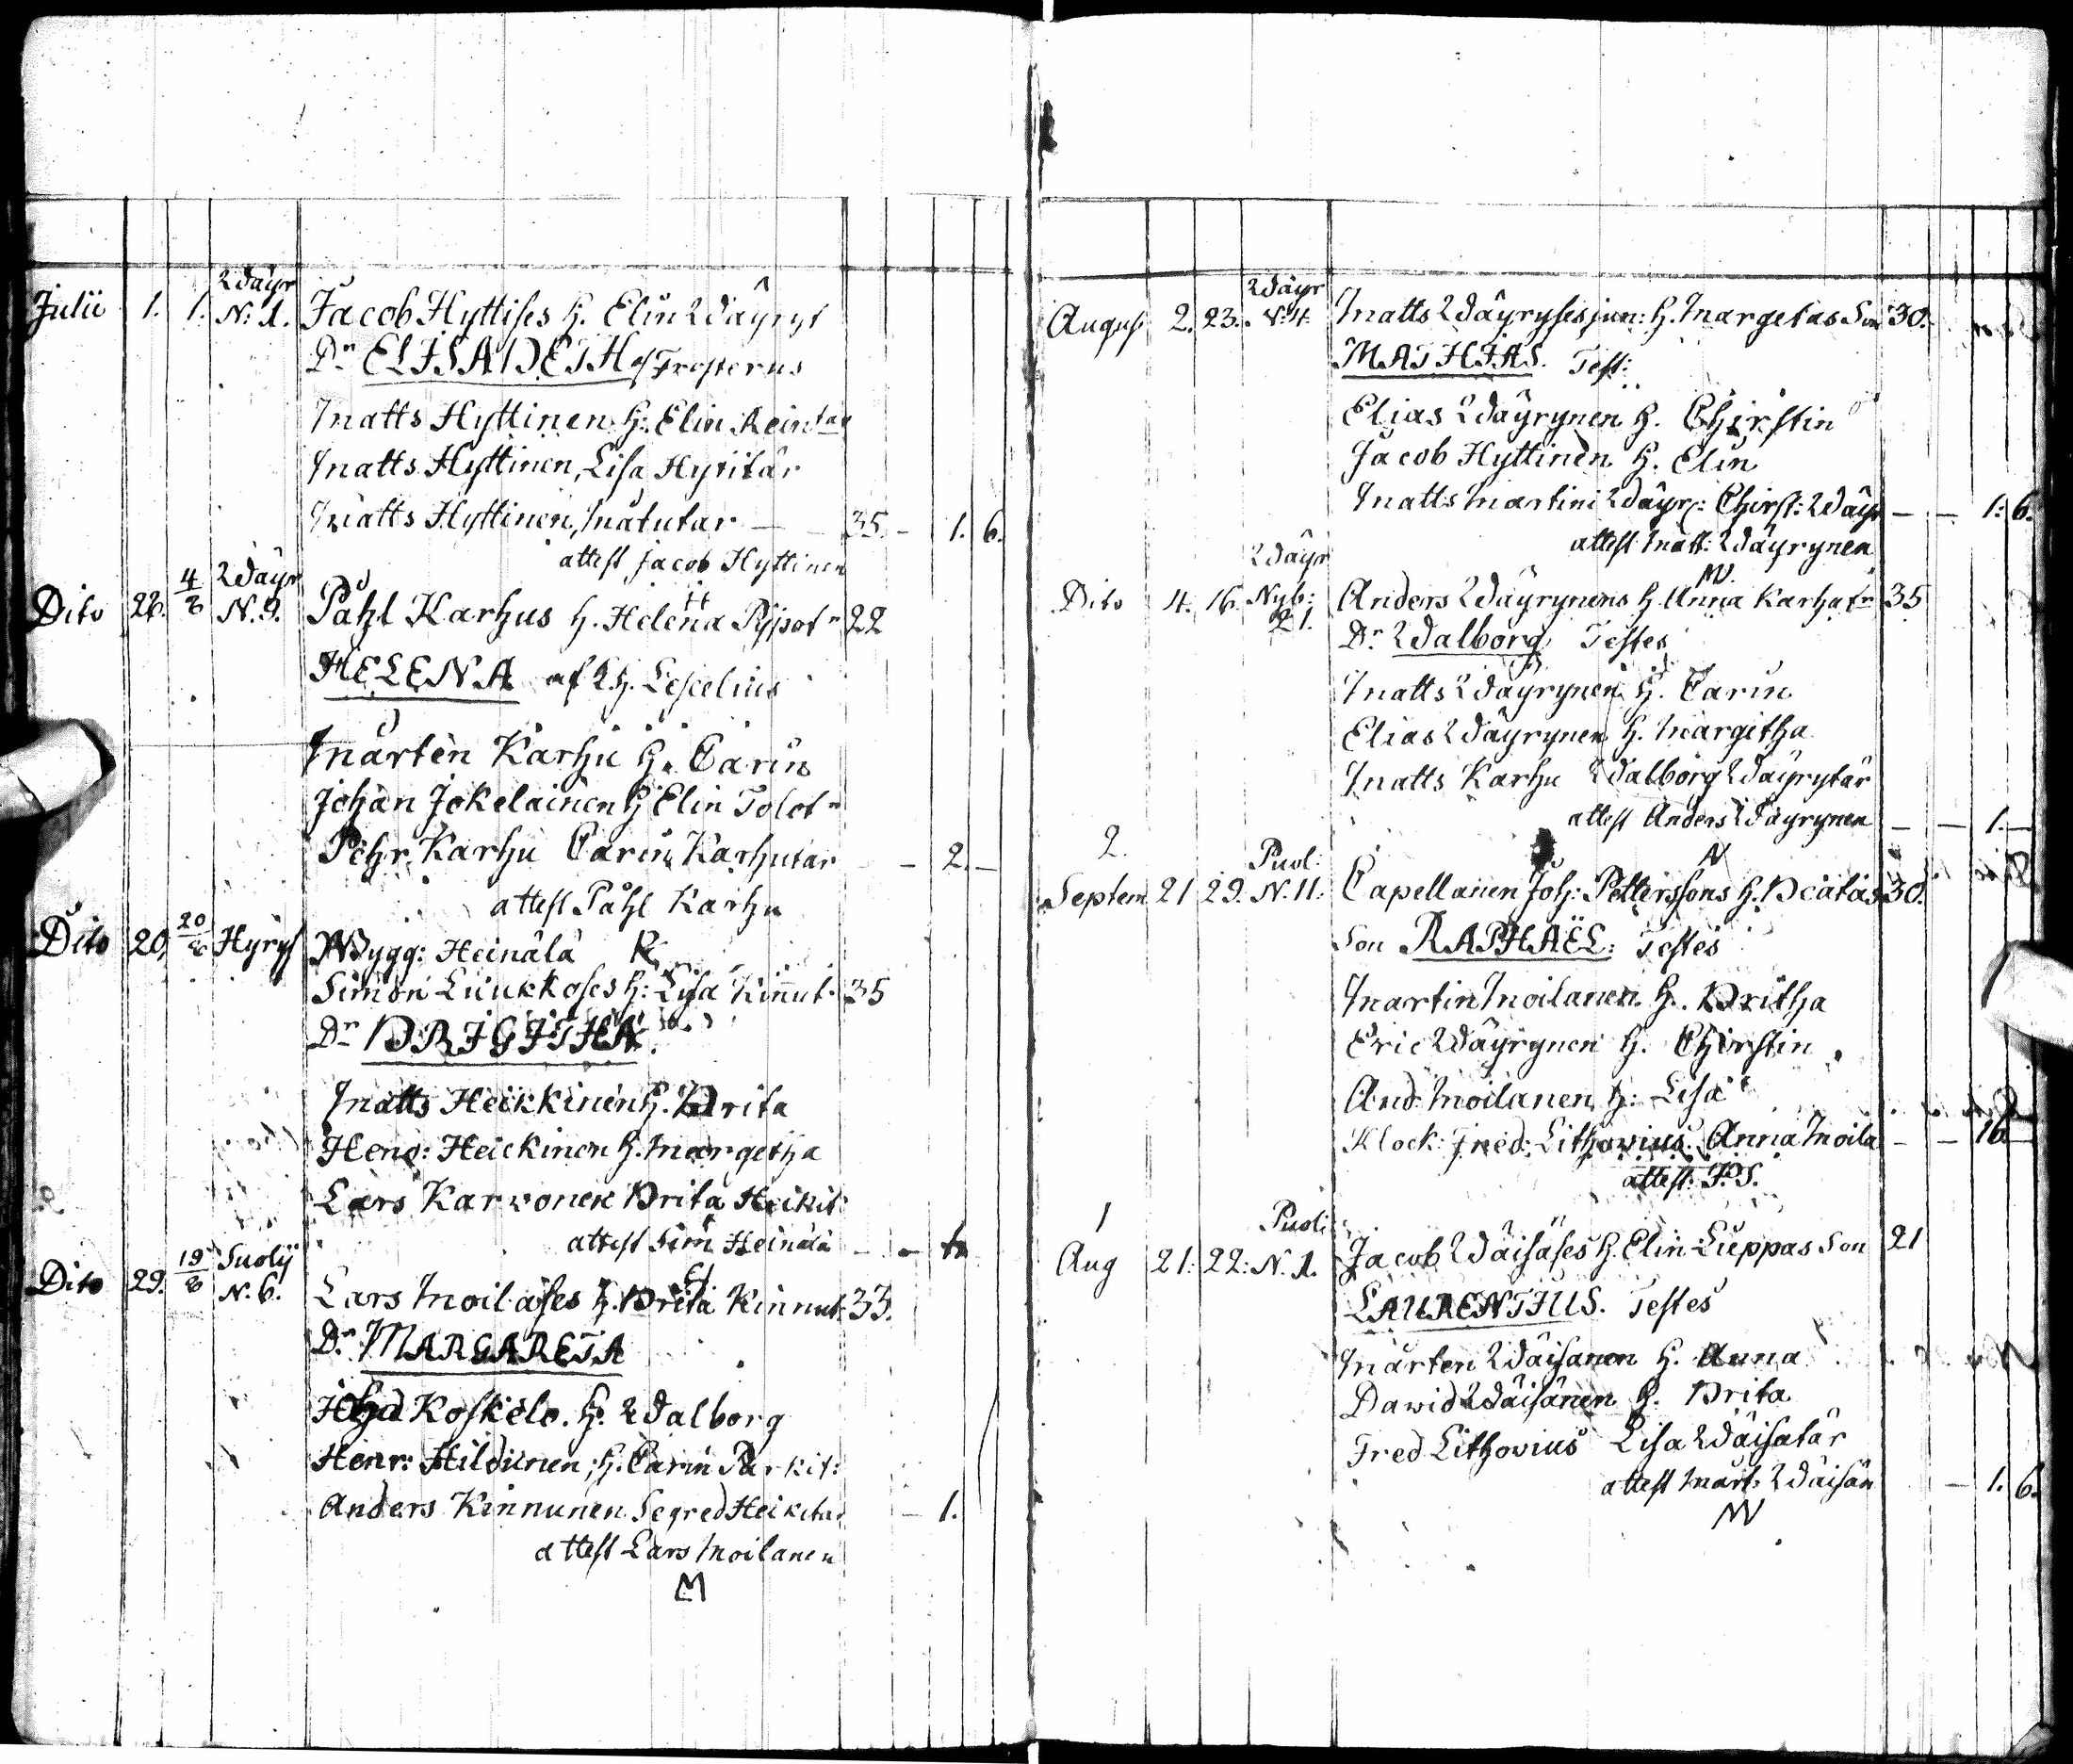 Wäyr
Julii 1. 1. N: 1. Jacob Hyttises H. Elin Wäyryt
Dr ELISABETH af Frosterus
Matts Hyttinen H: Elin Reintar
Matts Hyttinen, Lisa Hyritär
Matts Hyttinen, Mätutar — 35. - 1. 6.
attest Jacob Hyttinen
Wäyr
Dito 26. 4/8 N. 9. Påhl Karhus H. Helena Pyjiotr 22
HELENA af Lescelius
Mårten Karhu H. Carin
Johan Jokelainen H Elin Tolotr
Pehr Karhu Carin Karhutar - 2. —
attest Påhl Karhu
Dito 20. 20/8 Hyrys Nybygg: Heinälä
Simon Liukkoses H: Lisa Kinnut. 35
Dr BRIGITHA.
Matts Heikkinen H. Brita
Henr: Heickinen H. Margetha
Lars Karvonen Brita Heikit
attest Sim Heinälä —
Suolij
Dito 29. 19/8 N. 6. Lars Moilases H. Brita Kinnut 33.
Dr MARGARETA
Koskelo. H. Walborg
Henr: Hildunen, H. Carin Parkit:
Anders Kinnunen Segred Heikitar — 1.
attest Lars Moilanen
M
Wäyr
August 2. 23. N: 4. Matts Wäyryses jun: H. Margetas Son 30.
MATHIAS. Test:
Elias Wäyrynen H. Chirstin
Jacob Hyttinen H. Elin
Matts Martini Wäyr: Chirst: Wäyr — — 1: 6.
attest Matt: Wäyrynen
Wäyr
Dito 4. 16. Nyb: 21. Anders Wäyrynens H Anna Karhatr 35
Dr Walborg Testes
Matts Wäyrynen H. Carin
Elias Wäyrynen H. Margitha
Matts Karhu Walborg Wäyrytär
attest Anders Wäyrynen — — 1. —
2. Puol:
Septem 21 29. N. 11: Capellanen Joh: Petterssons H. Beatas 30.
Son RAPHAËL: Testes
Martin Moilanen H. Britha
Eric Wäyrynen H. Chirstin
And: Moilanen H: Lisa
Klock: Fred: Lithovius. Anna Moila — — 16
attest J.P.S.
1 Puoli
Aug 21: 22: N. 1. Jacob Wäisäses H. Elin Lieppas Son 21
LAURENTIUS. Testes
Mårten Wäisanen H. Anna
Dawid Wäisänen H. Brita
Fred Lithovius Lisa Wäisatär
attest Mårt: Wäisän — 1. 6.